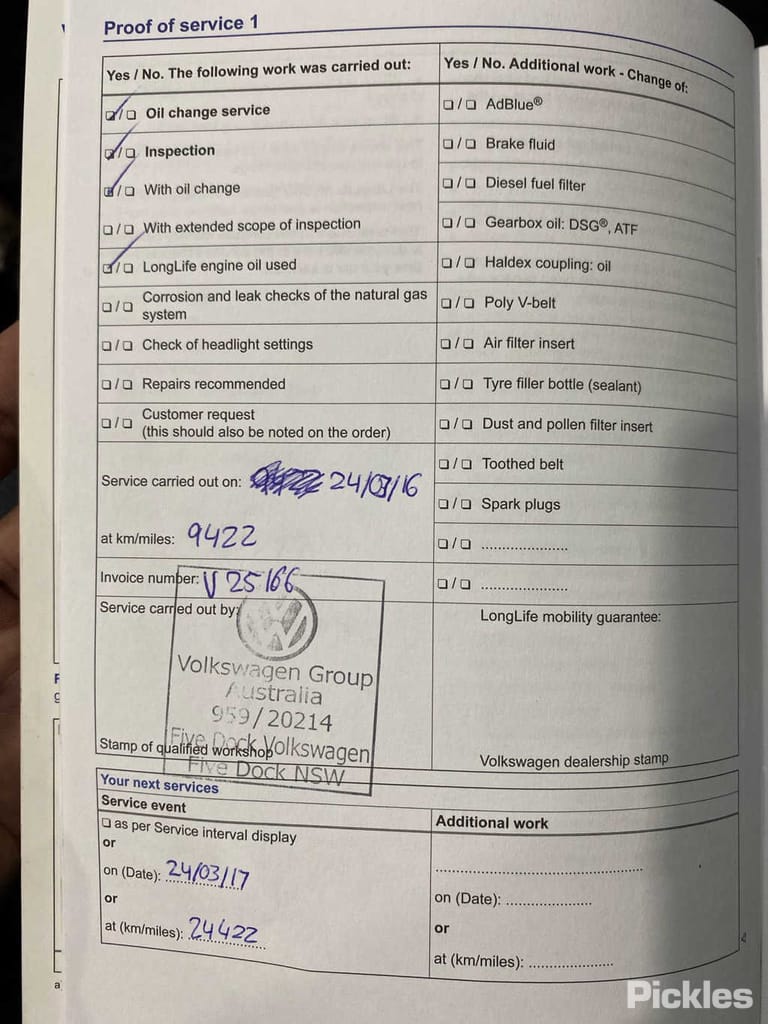 Proof of service 1
Yes / No. The following work was carried out:
❑ / ❑ Oil change service
❑ / ❑ Inspection
❑ / ❑ With oil change
❑ / ❑ With extended scope of inspection
❑ / ❑ LongLife engine oil used
❑ / ❑ Corrosion and leak checks of the natural gas
system
❑ / ❑ Check of headlight settings
❑ / ❑ Repairs recommended
❑ / ❑ Customer request
(this should also be noted on the order)
Service carried out on: 24/03/16
at km/miles: 9422
Invoice number: V 25166
Service carried out by:
Volkswagen Group
Australia
959/20214
Five Dock Volkswagen
Five Dock NSW
Stamp of qualified workshop
Yes / No. Additional work - Change of:
❑ / ❑ AdBlue®
❑ / ❑ Brake fluid
❑ / ❑ Diesel fuel filter
❑ / ❑ Gearbox oil: DSG®, ATF
❑ / ❑ Haldex coupling: oil
❑ / ❑ Poly V-belt
❑ / ❑ Air filter insert
❑ / ❑ Tyre filler bottle (sealant)
❑ / ❑ Dust and pollen filter insert
❑ / ❑ Toothed belt
❑ / ❑ Spark plugs
❑ / ❑ .....................
❑ / ❑ .....................
LongLife mobility guarantee:
Volkswagen dealership stamp
Your next services
Service event
❑ as per Service interval display
or
on (Date): 24/03/17
or
at (km/miles): 24422
Additional work
on (Date): .....................
or
at (km/miles): .....................
a)
Pickles